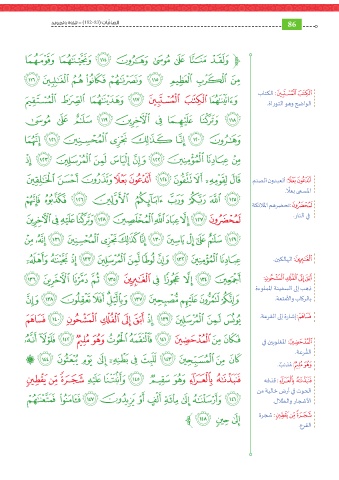 86
﴿ وَلَقَدْ مَنَنَّا عَلَىٰ مُوسَىٰ وَهَٰرُونَ ١١٤ وَنَجَّيْنَٰهُمَا وَقَوْمَهُمَا
مِنَ ٱلْكَرْبِ ٱلْعَظِيمِ ١١٥ وَنَصَرْنَٰهُمْ فَكَانُوا۟ هُمُ ٱلْغَٰلِبِينَ ١١٦
وَءَاتَيْنَٰهُمَا ٱلْكِتَٰبَ ٱلْمُسْتَبِينَ ١١٧ وَهَدَيْنَٰهُمَا ٱلصِّرَٰطَ ٱلْمُسْتَقِيمَ
١١٨ وَتَرَكْنَا عَلَيْهِمَا فِى ٱلْءَاخِرِينَ ١١٩ سَلَٰمٌ عَلَىٰ مُوسَىٰ
وَهَٰرُونَ ١٢٠ إِنَّا كَذَٰلِكَ نَجْزِى ٱلْمُحْسِنِينَ ١٢١ إِنَّهُمَا
مِنْ عِبَادِنَا ٱلْمُؤْمِنِينَ ١٢٢ وَإِنَّ إِلْيَاسَ لَمِنَ ٱلْمُرْسَلِينَ ١٢٣ إِذْ
قَالَ لِقَوْمِهِۦٓ أَلَا تَتَّقُونَ ١٢٤ أَتَدْعُونَ بَعْلًا وَتَذَرُونَ أَحْسَنَ ٱلْخَٰلِقِينَ
١٢٥ ٱللَّهَ رَبَّكُمْ وَرَبَّ ءَابَآئِكُمُ ٱلْأَوَّلِينَ ١٢٦ فَكَذَّبُوهُ فَإِنَّهُمْ
لَمُحْضَرُونَ ١٢٧ إِلَّا عِبَادَ ٱللَّهِ ٱلْمُخْلَصِينَ ١٢٨ وَتَرَكْنَا عَلَيْهِ فِى ٱلْءَاخِرِينَ
١٢٩ سَلَٰمٌ عَلَىٰٓ إِلْ يَاسِينَ ١٣٠ إِنَّا كَذَٰلِكَ نَجْزِى ٱلْمُحْسِنِينَ ١٣١ إِنَّهُۥ مِنْ
عِبَادِنَا ٱلْمُؤْمِنِينَ ١٣٢ وَإِنَّ لُوطًا لَّمِنَ ٱلْمُرْسَلِينَ ١٣٣ إِذْ نَجَّيْنَٰهُ وَأَهْلَهُۥٓ
أَجْمَعِينَ ١٣٤ إِلَّا عَجُوزًا فِى ٱلْغَٰبِرِينَ ١٣٥ ثُمَّ دَمَّرْنَا ٱلْءَاخَرِينَ ١٣٦
وَإِنَّكُمْ لَتَمُرُّونَ عَلَيْهِم مُّصْبِحِينَ ١٣٧ وَبِٱلَّيْلِ أَفَلَا تَعْقِلُونَ ١٣٨ وَإِنَّ
يُونُسَ لَمِنَ ٱلْمُرْسَلِينَ ١٣٩ إِذْ أَبَقَ إِلَى ٱلْفُلْكِ ٱلْمَشْحُونِ ١٤٠ فَسَاهَمَ
فَكَانَ مِنَ ٱلْمُدْحَضِينَ ١٤١ فَٱلْتَقَمَهُ ٱلْحُوتُ وَهُوَ مُلِيمٌ ١٤٢ فَلَوْلَآ أَنَّهُۥ
كَانَ مِنَ ٱلْمُسَبِّحِينَ ١٤٣ لَلَبِثَ فِى بَطْنِهِۦٓ إِلَىٰ يَوْمِ يُبْعَثُونَ ١٤٤
فَنَبَذْنَٰهُ بِٱلْعَرَآءِ وَهُوَ سَقِيمٌ ١٤٥ وَأَنۢبَتْنَا عَلَيْهِ شَجَرَةً مِّن يَقْطِينٍ
١٤٦ وَأَرْسَلْنَٰهُ إِلَىٰ مِا۟ئَةِ أَلْفٍ أَوْ يَزِيدُونَ ١٤٧ فَـَٔامَنُوا۟ فَمَتَّعْنَٰهُمْ
إِلَىٰ حِينٍ ١٤٨ ﴾
ٱلْكِتَٰبَ ٱلْمُسْتَبِينَ: الكتاب
الواضح وهو التوراة.
أَتَدْعُونَ بَعْلًا: أتعبدون الصنم
المسمى بعلًا.
لَمُحْضَرُونَ: تحضرهم الملائكة
في النار.
ٱلْغَٰبِرِينَ: الهالكين.
أَبَقَ إِلَى ٱلْفُلْكِ ٱلْمَشْحُونِ:
ذهب إلى السفينة المملوءة
بالركاب والأمتعة.
فَسَاهَمَ: إشارة إلى القرعة.
ٱلْمُدْحَضِينَ: المغلوبين في
القرعة.
وَهُوَ مُلِيمٌ:
فَنَبَذْنَٰهُ بِٱلْعَرَآءِ: قذفه
الحوت في أرض خالية من
الأشجار والظلال.
شَجَرَةً مِّن يَقْطِينٍ: شجرة
القرع.